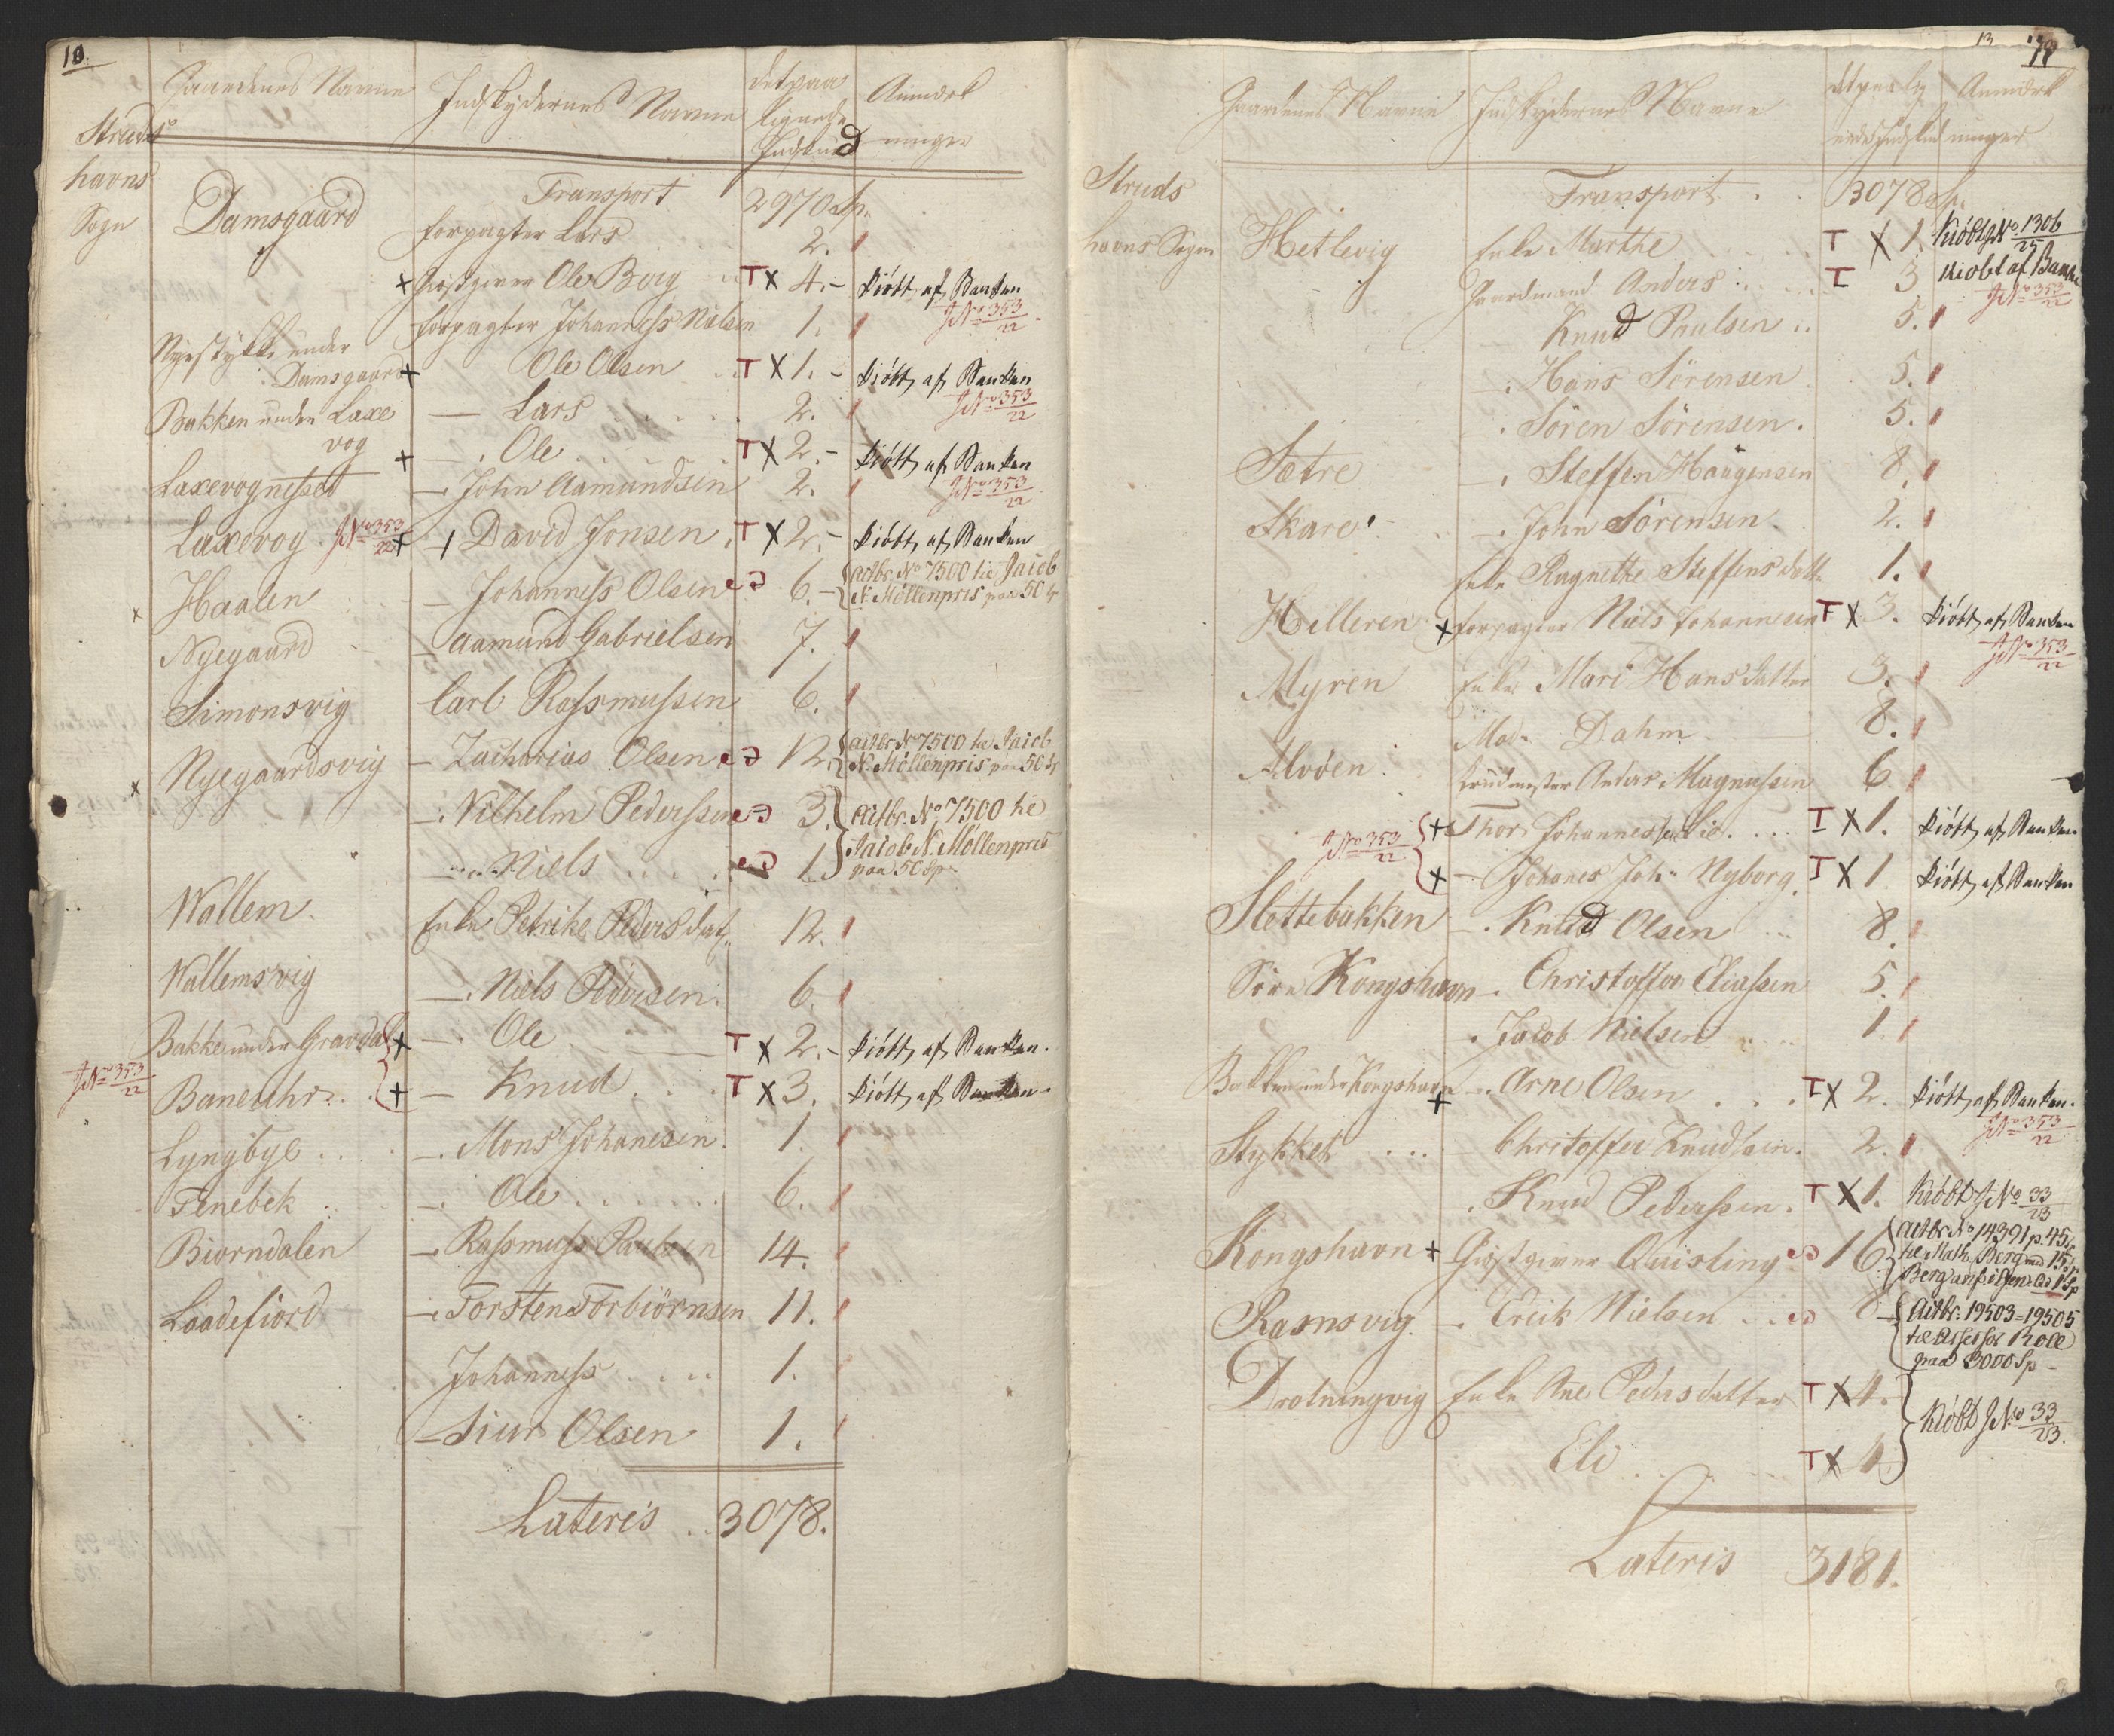 10.
Gaardenes Navne Indskydernes Navne det paa lignede Indskud Anmærkninger
Struds havns Sogn
Transport 2970 Sp.
Damsgaard forpagter Lars 2.
+ Giestgiver Ole Berg T X 4.- kiøbt af Banken
J№ 353/22
forpagter Johanness Nielsen 1.
Nyestykke under Damsgaard + Ole Olsen T X 1.- kiøbt af Banken
J№ 353/22
Bakken under Laxevog — Lars 2.
+ — Ole T X 2.- kiøbt af Banken
J№ 353/22
Laxevognesset — John Aamundsen 2.
Laxevog J№ 353/22 + — David Jonsen T X 2.- kiøbt af Banken
x Haalen — Johanness Olsen 6.- actbr. № 7500 til Jacob N. Möllenpris paa 50 Sp
Nyegaard — Aamund Gabrielsen 7.
Simonsvig Carl Rassmussen 6.
x Nyegaardsvig — Zacharias Olsen 12. actbr. № 7500 til Jacob N. Möllenpris paa 50 Sp
—. Vilhelm Pederssen 3. actbr. № 7500 til
Niels 1. Jacob N. Möllenpris paa 50 Sp
Wallem Enke Petrike Peders dat. 12.
Wallemsvig —. Niels Pedersen 6.
Bakke under Gravdal + —. Ole T X 2.- kiøbt af Banken.
J№ 353/22
Baneuhr + — Knud T X 3. kiøbt af Banken.
Lyngbye —. Mons Johanesen 1.
Tenebek —. Ole 6.
Biorndalen —. Rassmuss Paulsen 14.
Loddefiord —. Torsten Torbiörnsen 11.
Johanness 1.
— Siur Olsen 1.
Lateris 3078.
13 11
Gaardenes Navne Indskydernes Navne det paalignede Indskud Anmærkninger
Struds havns Sogn
Transport 3078 Sp.
Hetlevig Enke Marthe T X 1. kiøbt J№ 1306/25
Gaardmand Anders T 3 kiøbt af Banken
J№ 353/22
Knud Paulsen 5.
—. Hans Sörensen 5.
. Sören Sörensen. 5.
Sætre —. Steffen Haagensen 8.
Skare —. John Sörensen. 2.
Enke Ragnethe Steffens datt. 1.
Hilleren + forpagter Niels Johannesen T X 3. kiøbt af Banken
J№ 353/22
Myren Enke Mari Hans datter 3.
Mad. Dahm 8.
Alvöen Krudmester Anders Magnussen 6
J№ 353/22 + Thor Johannessen T X 1. kiøbt af Banken.
+ — Johanes Joh. Nyborg. T X 1 kiøbt af Banken
Slettebakken —. Knud Olsen 8.
Söre Kongshavn —. Christoffer Eliassen 5.
. Jacob Nielsen 1.
Bakken under Kongshavn + —. Arne Olsen T X 2. kiøbt af Banken.
J№ 353/22
Stykket — Christoffer Knudsen. 2.
. Knud Pederssen. T X 1. kiøbt J№ 33/23
Kongshavn + Giestgiver Quisling 16 actbr. № 14391 p. 45 Sp
til Math. Berg med 15 Sp
Rasnsvig. —. Erick Nielsen 8 actbr. 19503=19505
til Assessor Roll
paa 3000 Sp
Drotningvig Enke Ane Peders datter T X 4.
Eli T X 4 kiøbt J№ 33/23.
Lateris 3181.